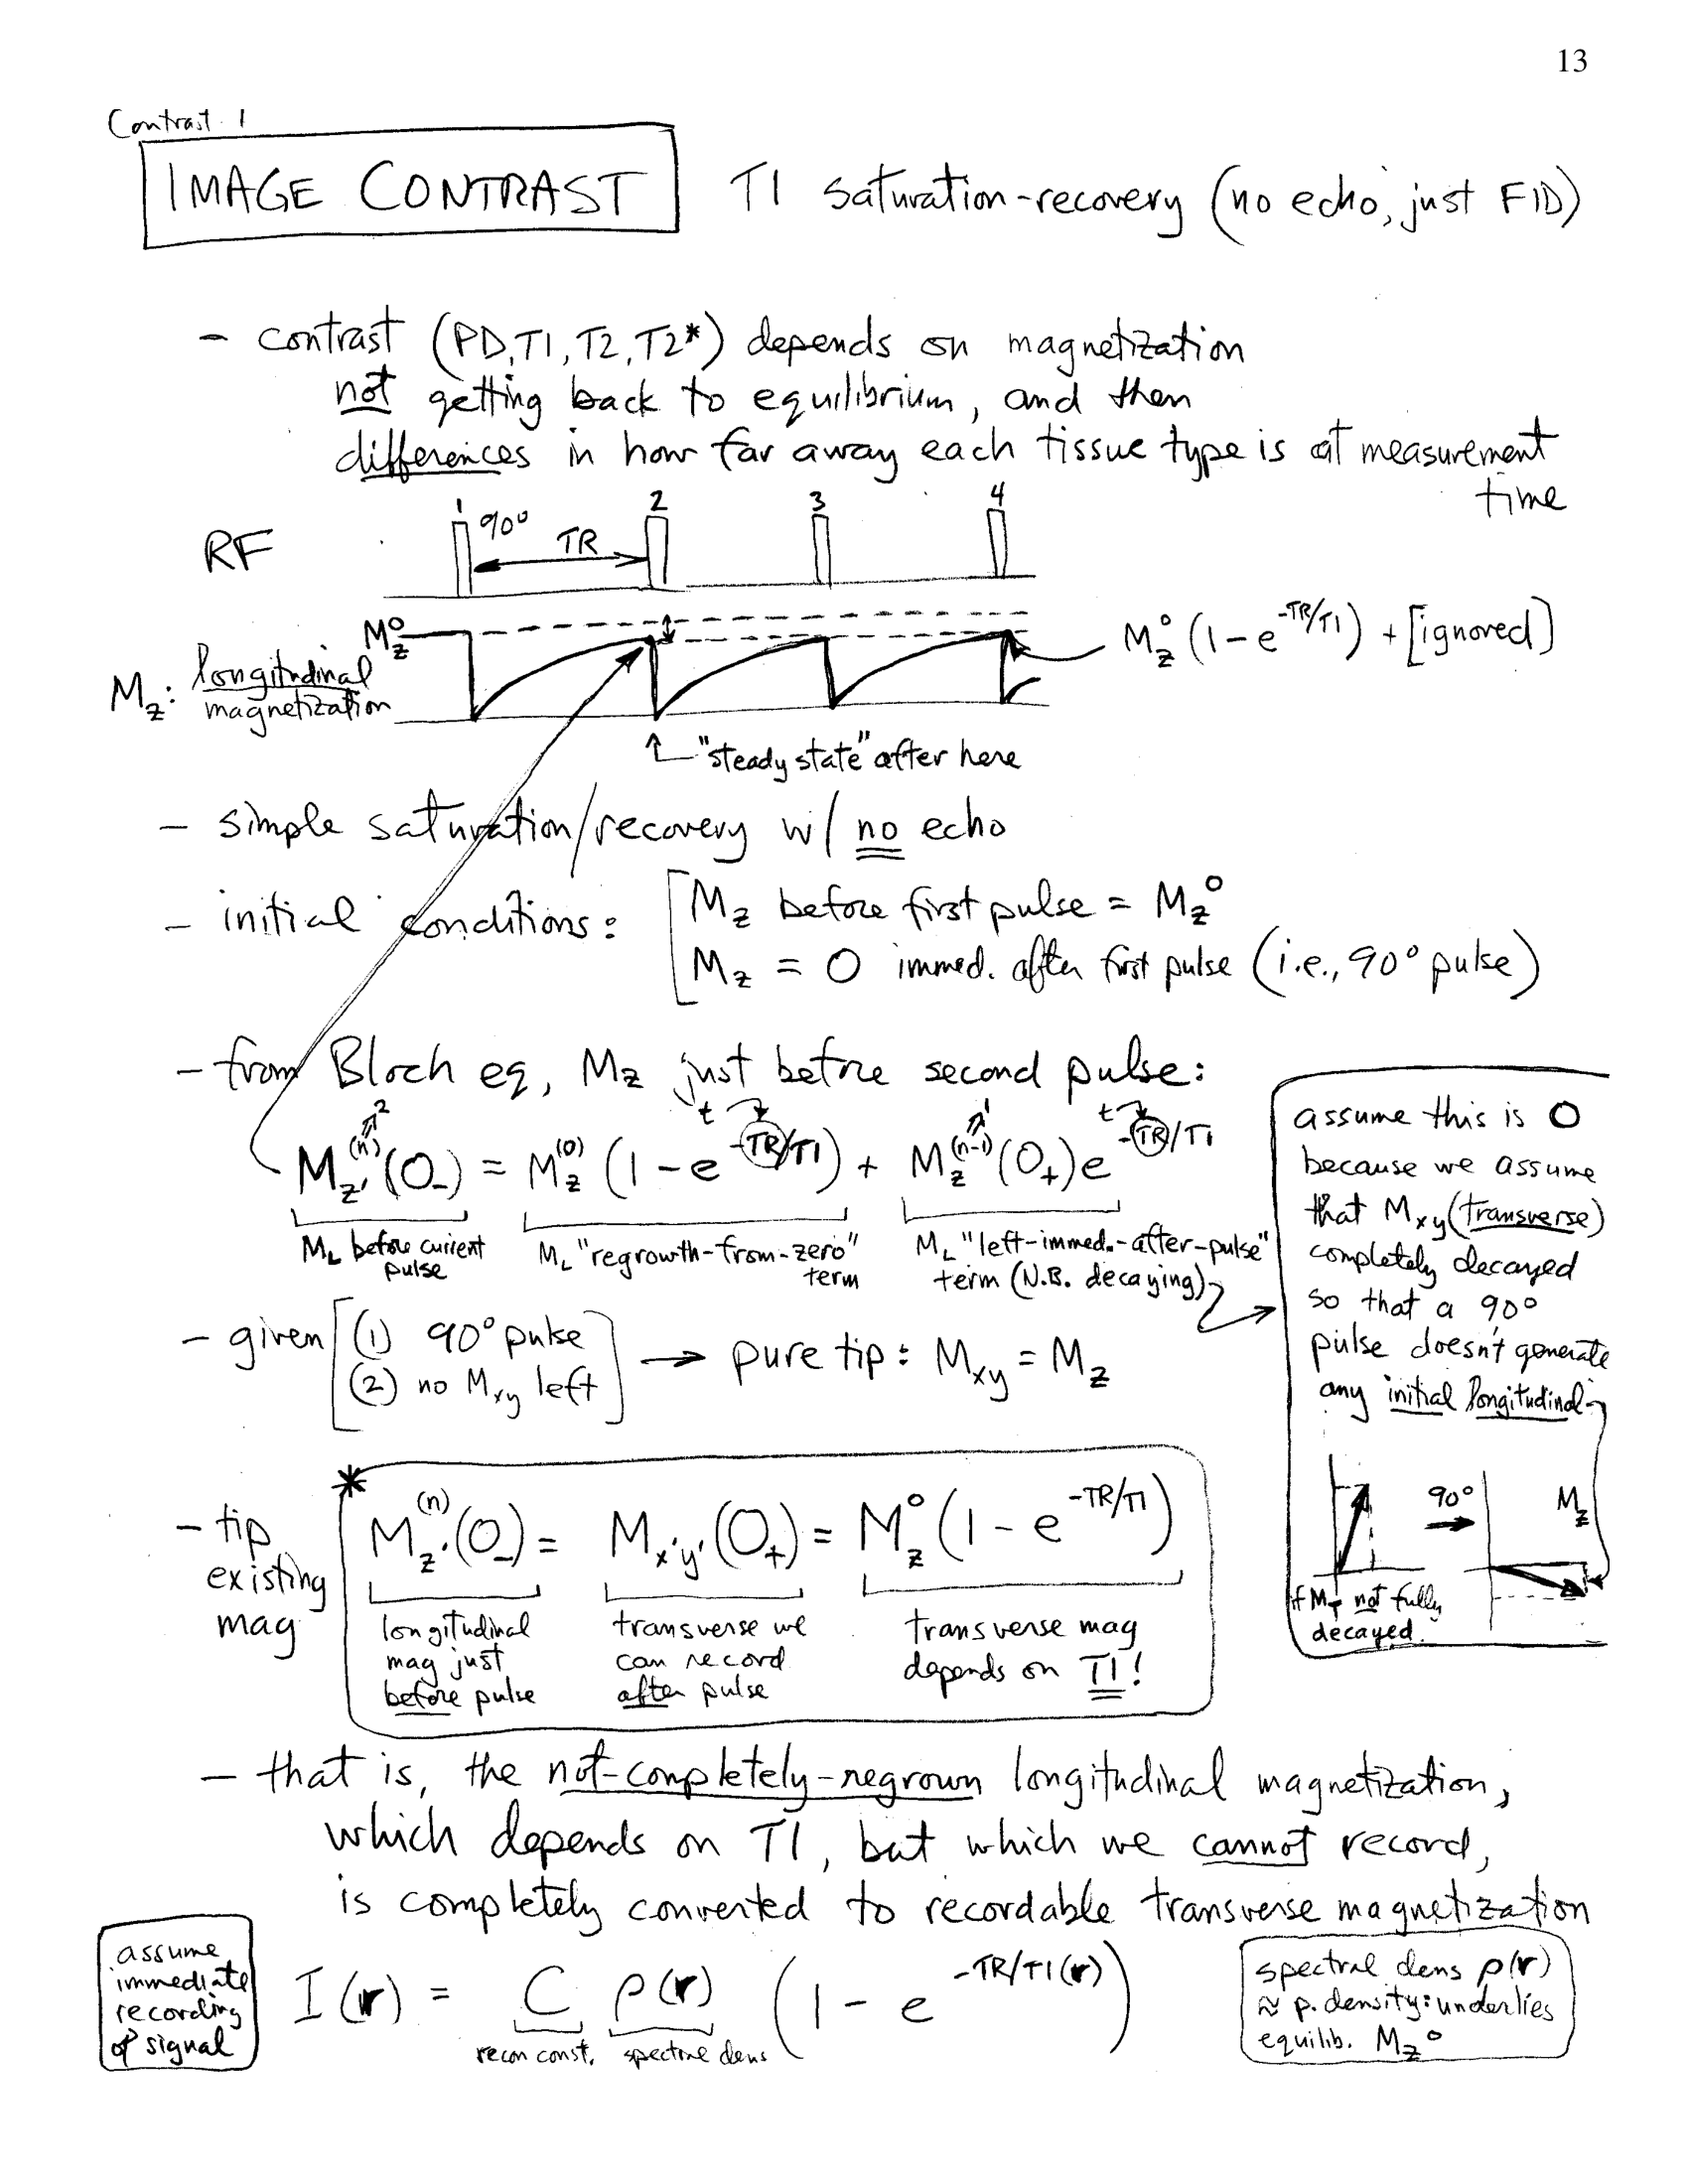 13
Contrast 1
IMAGE CONTRAST T1 saturation-recovery (no echo, just FID)
- contrast (PD, T1, T2, T2*) depends on magnetization
not getting back to equilibrium, and then
differences in how far away each tissue type is at measurement
time
RF
1 90° 2 3 4
TR
M_z^0
M_z^0 (1 - e^{-TR/T1}) + [ignored]
M_z: longitudinal
magnetization
"steady state" after here
- simple saturation/recovery w/ no echo
- initial conditions: [M_z before first pulse = M_z^0
M_z = 0 immed. after first pulse (i.e., 90° pulse)
- from Bloch eq, M_z just before second pulse:
2 t 1 t
M_{z'}^{(n)}(0_-) = M_z^{(0)} (1 - e^{-TR/T1}) + M_z^{(n-1)}(0_+) e^{-TR/T1}
M_L before current
pulse
M_L "regrowth-from-zero"
term
M_L "left-immed.-after-pulse"
term (N.B. decaying)
assume this is 0
because we assume
that M_xy (transverse)
completely decayed
so that a 90°
pulse doesn't generate
any initial longitudinal
90° M_z
if M_T not fully
decayed.
- given [(1) 90° pulse
(2) no M_xy left] → pure tip: M_xy = M_z
- tip
existing
mag
* M_{z'}^{(n)}(0_-) = M_{x'y'}(0_+) = M_z^0 (1 - e^{-TR/T1})
longitudinal
mag just
before pulse
transverse we
can record
after pulse
transverse mag
depends on T1!
- that is, the not-completely-regrown longitudinal magnetization,
which depends on T1, but which we cannot record,
is completely converted to recordable transverse magnetization
assume
immediate
recording
of signal
I(r) = C ρ(r) (1 - e^{-TR/T1(r)})
recon const. spectral dens
spectral dens ρ(r)
≈ p. density: underlies
equilib. M_z^0